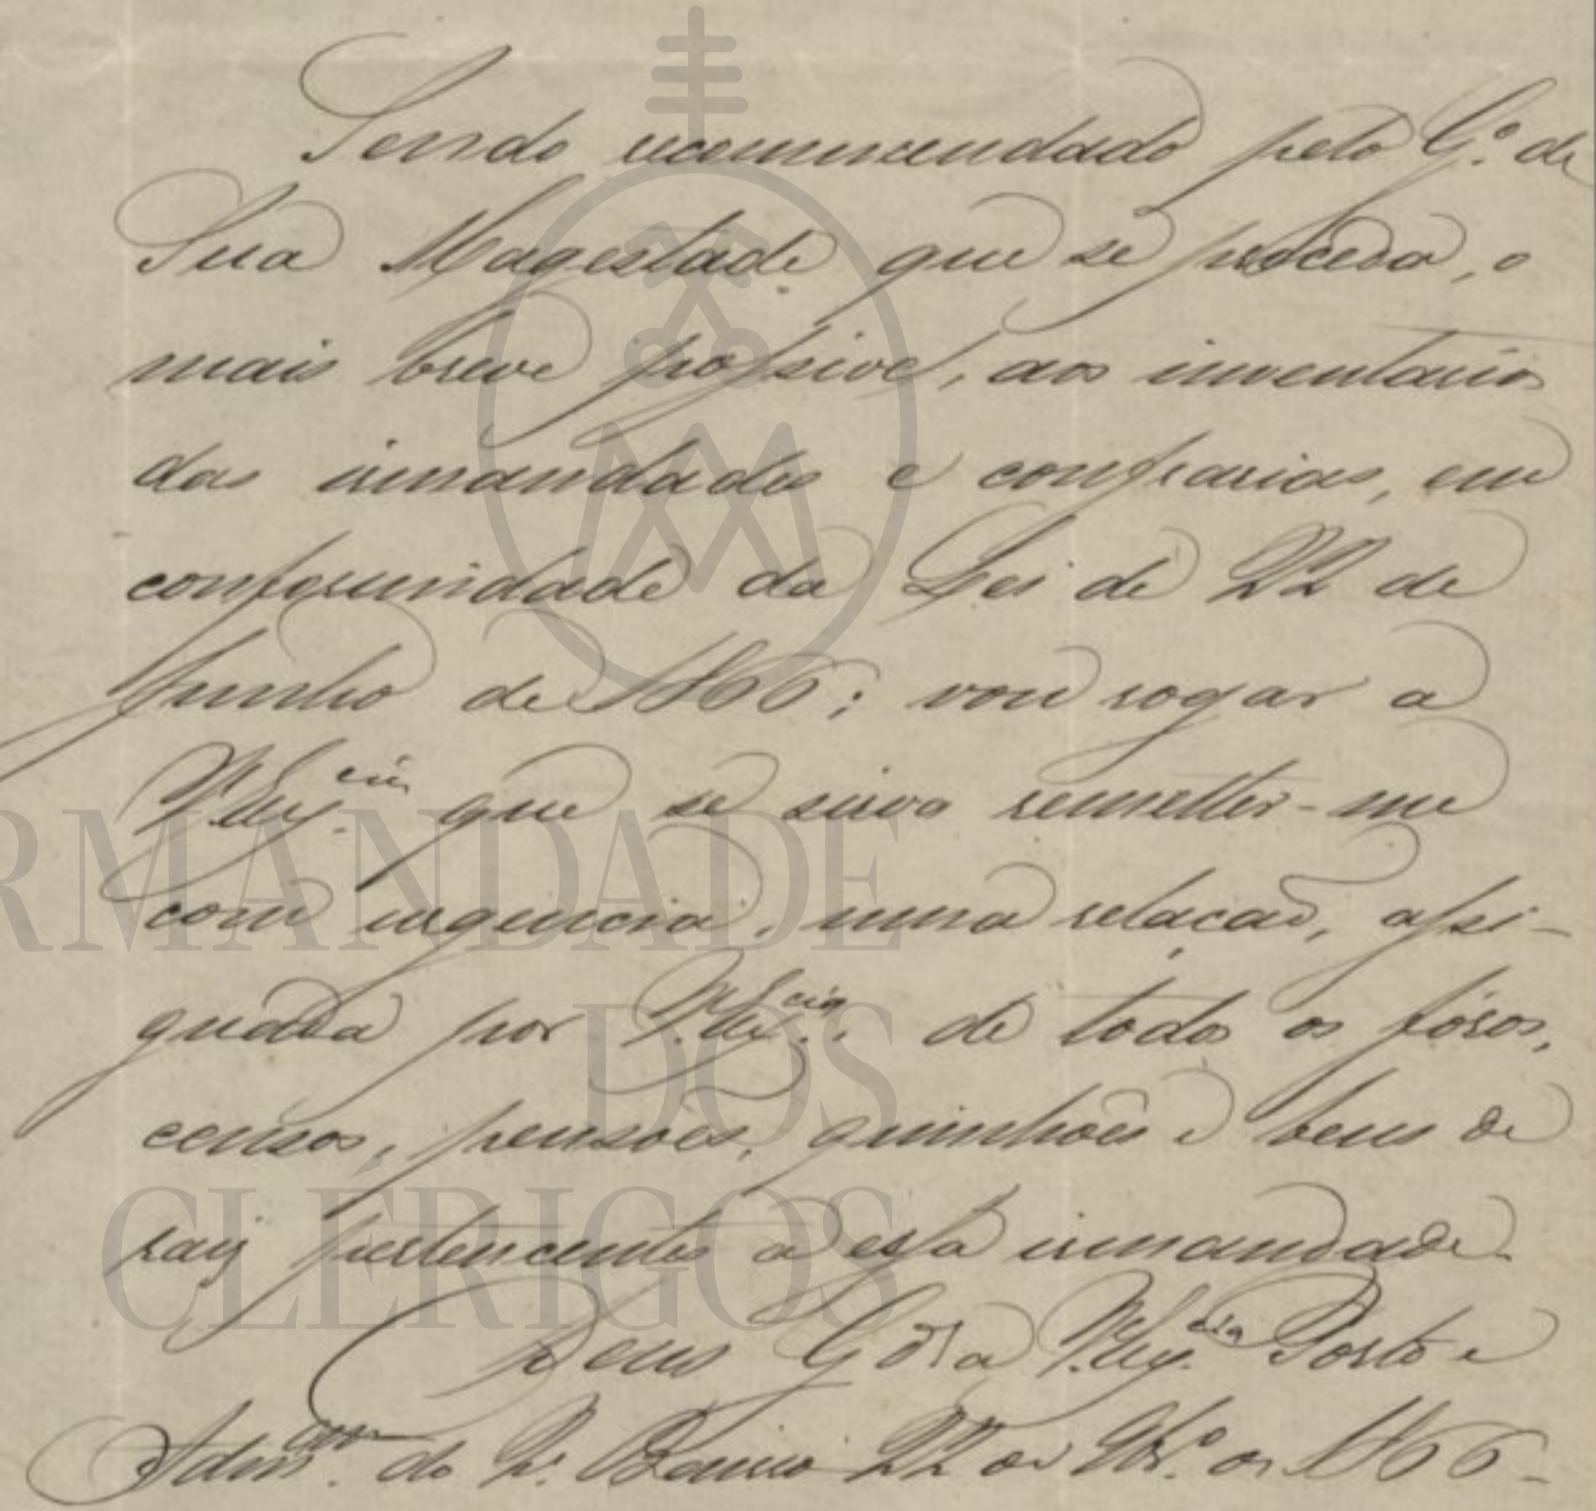 Sendo recommendado pelo G.º de
Sua Magestade que se proceda, o
mais breve possivel, aos inventarios
das irmandades e confrarias, em
conformidade da Lei de 22 de
Junho de 1866; vou rogar a
V. Ex.cia que se sirva remetter-me
com urgencia, uma relação, assi-
gnada por V. Ex.cia, de todos os fóros,
censos, pensões, quinhões e bens de
raiz pertencentes a essa irmandade.
Deus G.de a V. Ex.cia Porto e
Adm.am do 2.º Bairro 22 de de 1866.
RMANDADE
DOS
CLÉRIGOS